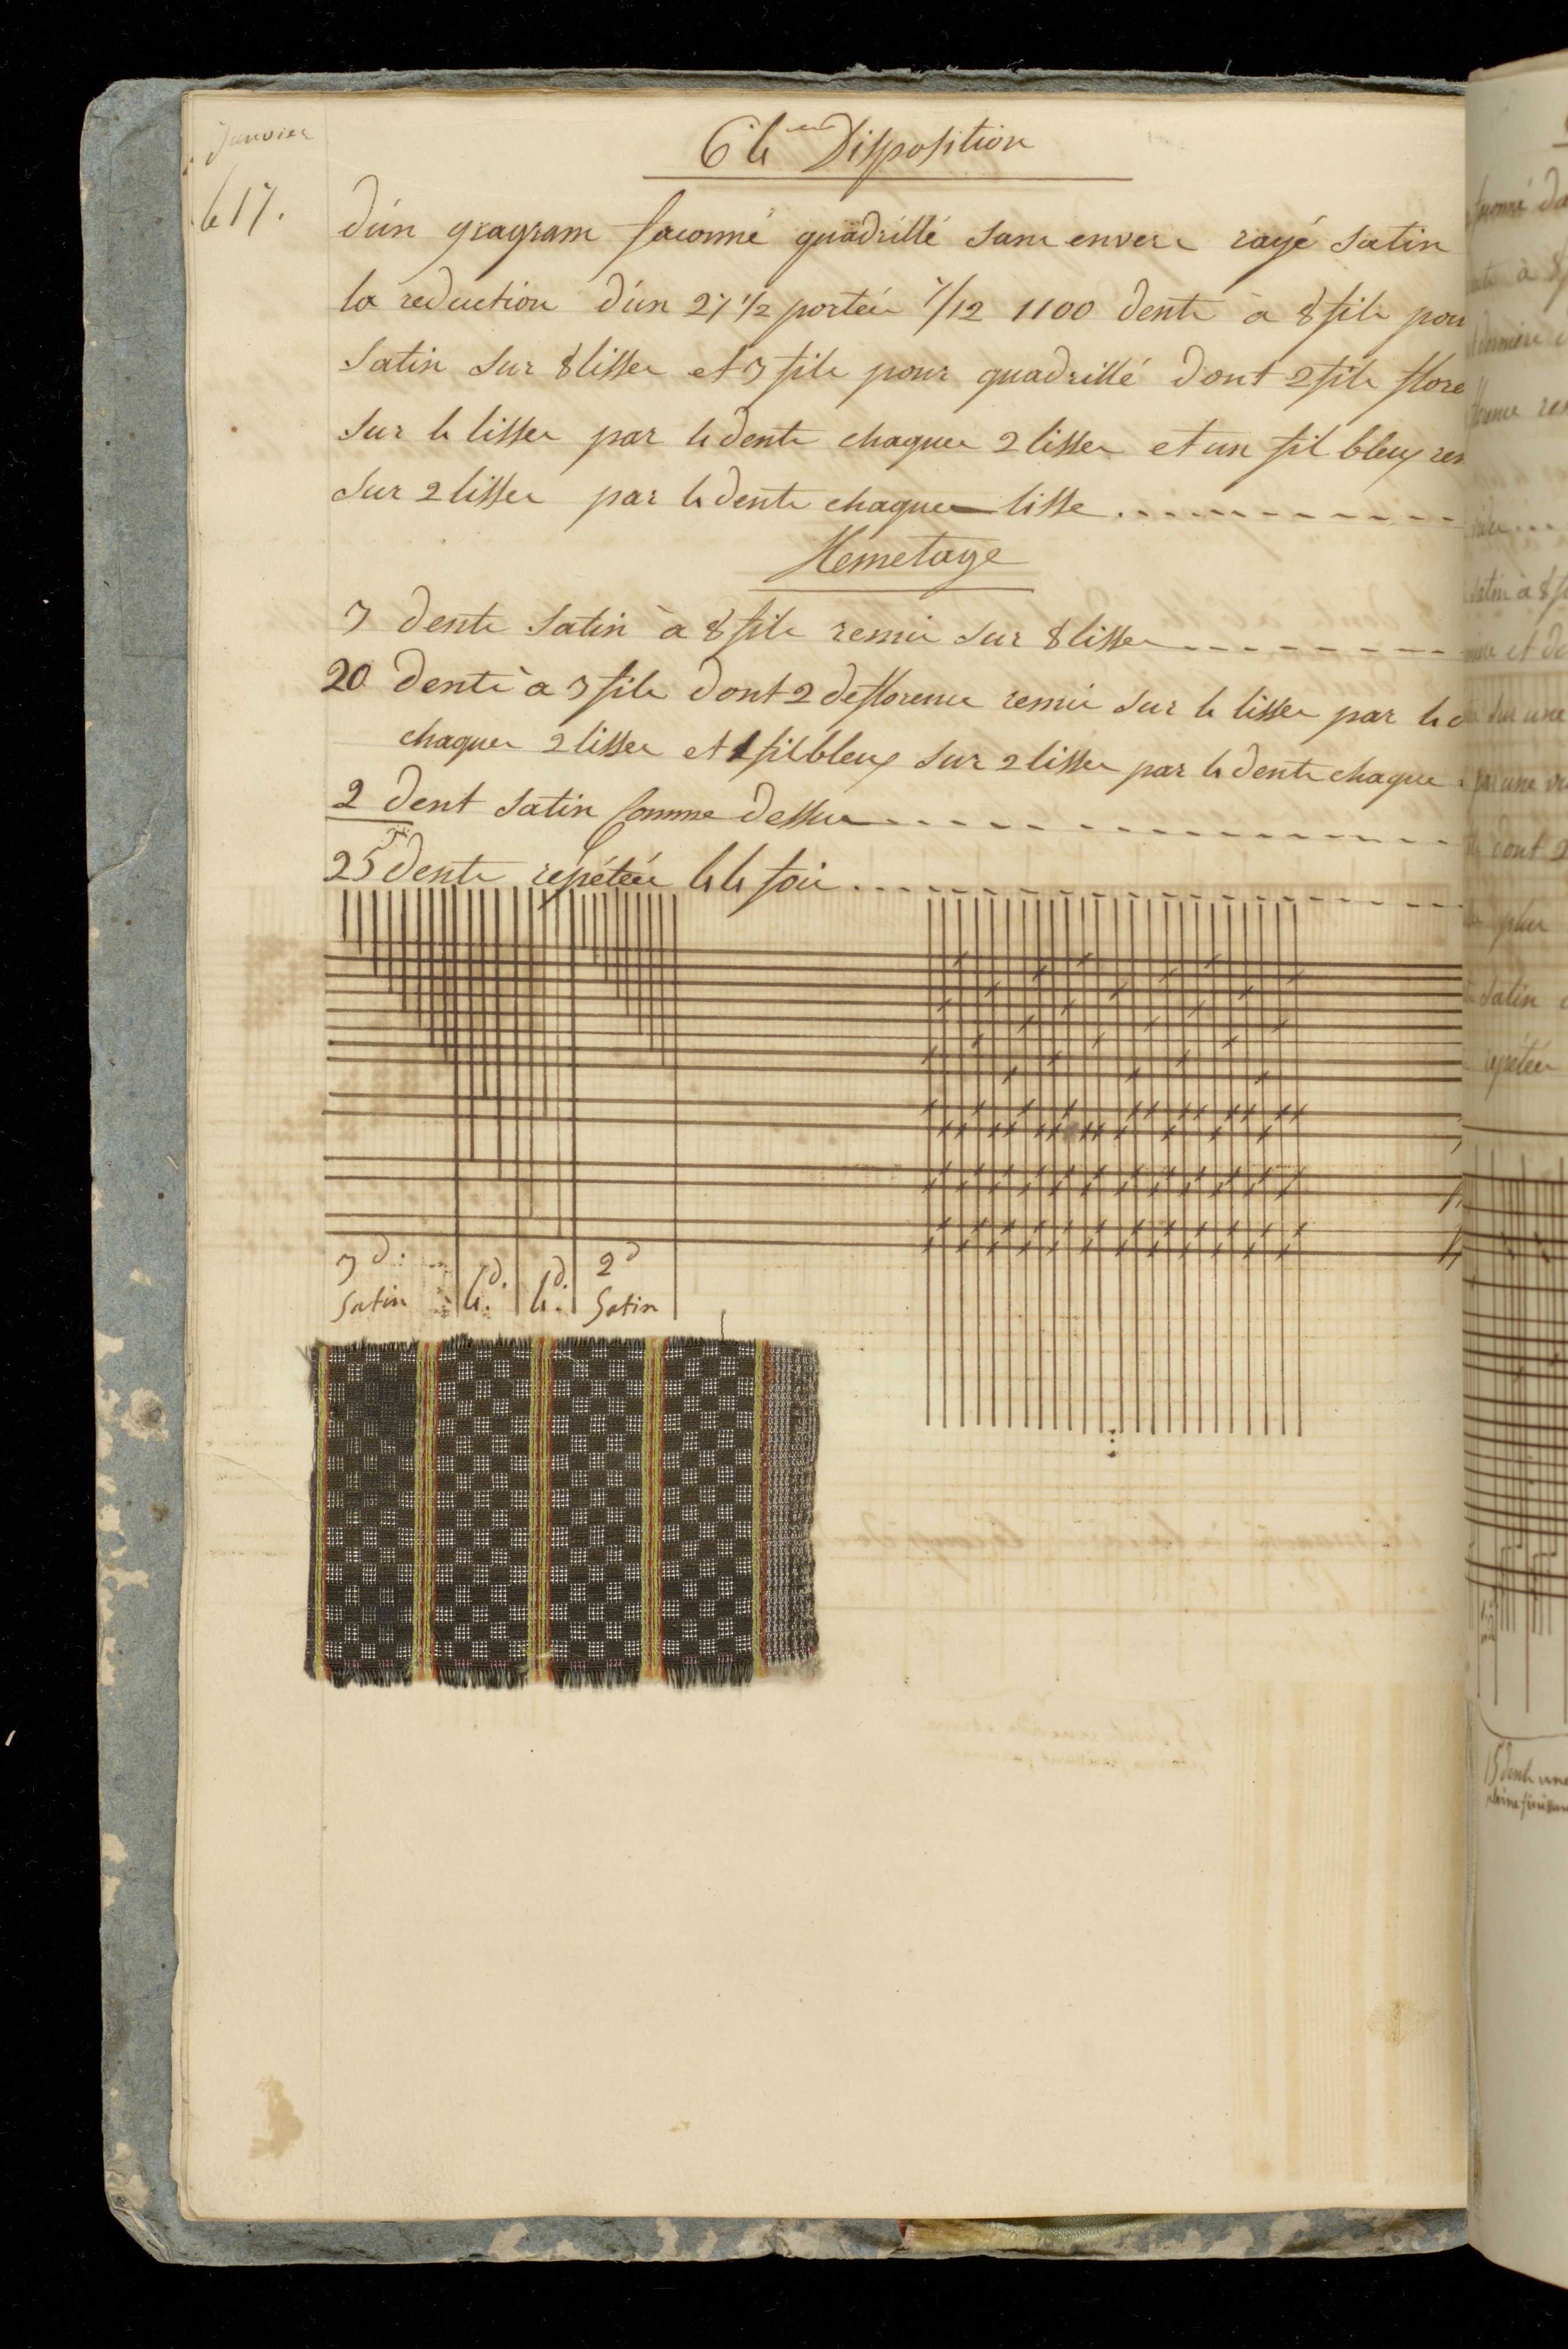 Janvier
le 17.
64 eme Disposition
d'un gragram faconné quadrillé sans envers rayé satin
la reduction d'un 27 1/2 portées 7/12 1100 dents à 8 fils pou
satin sur 8 lisses et 3 fils pour quadrillé dont 2 fils flore
sur 4 lisses par 4 dents chaques 2 lisses et un fil bleu
sur 2 lisses par 4 dents chaques lisse
Remetage
3 dents satin à 8 fils remis sur 8 lisses
20 dents à 3 fils dont 2 de florence remis sur 4 lisses par 4 d
chaques 2 lisses et 1 fil bleu sur 2 lisses par 4 dents chaque
2 dent satin comme dessus
25 dents répétées 44 fois
3 d. satin
4 d.
4 d.
2 d satin